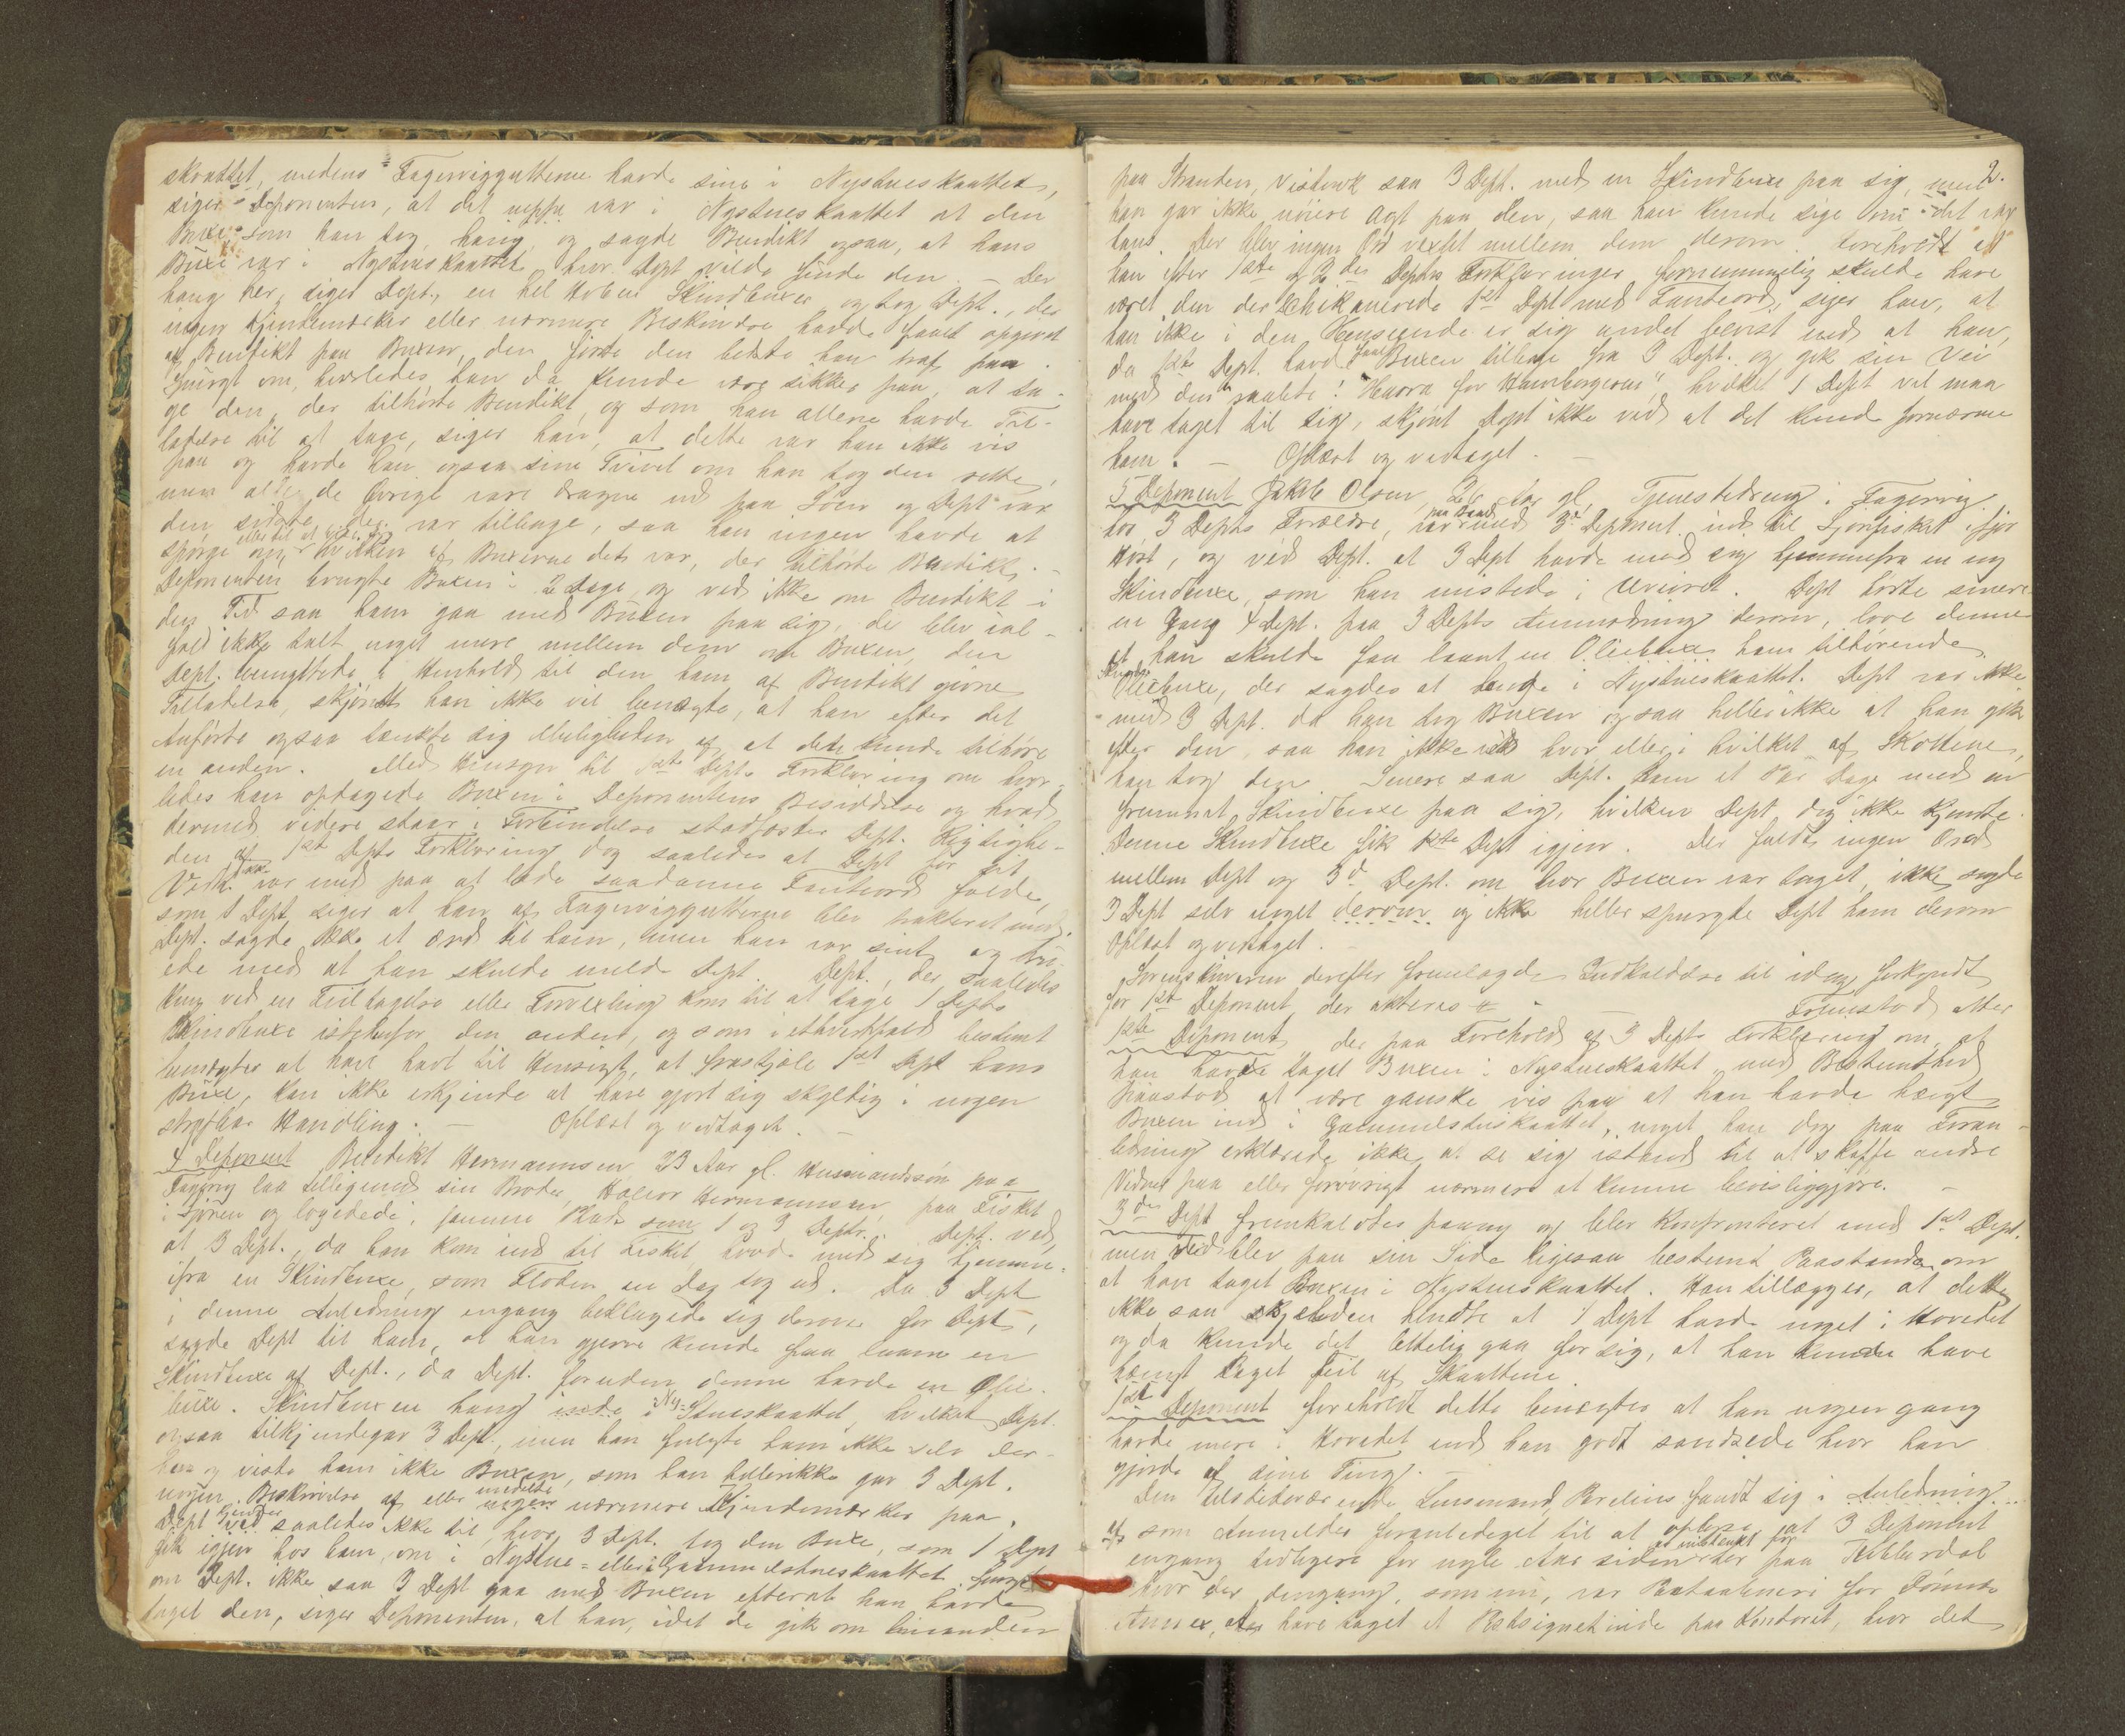 skvattet, medens Fagervigguttene havde sine i Nystueskaattet,
siger Deponenten, at det neppe var i Nystueskaattet at den
Buxe som han tog, hang, og sagde Bendikt ogsaa, at hans
Buxe var i Nystueskaattet hvor Dept vilde finde den – Der
hang her, siger Dept., en hel Hoben Skindbuxer og tog Dept., der
ingen Kjendemærker eller nærmere Beskrivelse havde faaet opgivet
af Bendikt paa Buxen, den første den bedste han traf paa
Spurgt om, hvorledes han da kunde være sikker paa, at ta-
ge den, der tilhørte Bendikt, og som han allene havde Til-
ladelse til at tage, siger han, at dette var han ikke vis
paa og havde han ogsaa sine Tvivl om han tog den rette,
men alle de Øvrige vare dragne ud paa Søen og Dept var
den sidste, der var tilbage, saa han ingen havde at
spørge om, hvilken af Buxerne det var, der tilhørte Bendikt. –
Deponenten brugte Buxen i 2 Dage, og ved ikke om Bendikt i
den Tid saa ham gaa med Buxen paa sig, der blev ial-
fald ikke talt noget mere mellem dem om Buxen, den
Dept. benyttede i Henhold til den ham af Bendikt givne
Tilladelse, skjøndt han ikke vil benægte, at han efter det
Anførte ogsaa tænkte sig Muligheden af at det kunde tilhøre
en anden. Med Hensyn til 1ste Depts Forklaring om hvor-
ledes han opdagede Buxen i Deponentens Besiddelse og hvad
dermed videre staar i Forbindelse stadfæster Dept. Rigtighe-
den af 1st Depts Forklaring dog saaledes at Dept for sit
Vedk. var med paa at lade saadanne Fanteord falde,
som 1 Dept siger at han af Fagervigguttene blev trakteret med.
Dept. sagde ikke et Ord til ham, men han var sint og tru-
ede med at han skulde melde Dept. Dept., der saaledes
kun ved en Feiltagelse eller Forvexling kom til at tage 1 Depts
Skindbuxe istedenfor den anden, og som i ethvertfald bestemt
benægter at have havt til Hensigt, at frastjæle 1st Dept hans
Buxe, kan ikke erkjende at have gjort sig skyldig i nogen
strafbar Handling. – Oplæst og vedtaget. –
4 Deponent Bendikt Hermannsen 23 Aar gl. Husmandssøn paa
Fagervig laa tilligemed sin Broder, Halvor Hermannsen, paa Fisket
i Sjøen og logerede i samme Bod som 1 og 3 Depts. Dept. ved,
at 3 Dept., da han kom ind til Fisket, havde med sig hjemme-
ifra en Skindbuxe, som Floden en Dag tog ud. Da 3 Dept
i denne Anledning engang beklagede sig derover for Dept,
sagde Dept til ham, at han gjerne kunde faa laane en
Skindbuxe af Dept., da Dept. foruden denne havde en Olie-
buxe. Skindbuxen hang inde i Ny-Stueskaattet, hvilket Dept.
ogsaa tilkjendegav 3 Dept., men han fulgte ham ikke selv der-
hen og viste ham ikke Buxen, som han hellerikke gav 3 Dept.
nogen Beskrivelse af eller meddelte nærmere Kjendemærker paa.
Dept kjender saaledes ikke til, hvor 3 Dept. tog den Buxe, som 1 Dept
gik igjen hos ham, om i Nystue- eller i Gammelstueskaattet. Spurgt
om Dept. ikke saa 3 Dept gaa med Buxen efterat han havde
taget den, siger Deponenten, at han, idet de gik om hinanden
2.
paa Stranden, vistnok saa 3 Dept. med en Skindbuxe paa sig, men
han gav ikke nøiere Agt paa den, saa han kunde sige om det var
hans. Der blev ingen Ord vexlet mellem dem derom. Foreholdt at
han efter 1ste og 3des Depts Forklaringer fornemmelig skulde have
været den der chikanerede 1st Dept med Fanteord, siger han, at
han ikke i den Henseende er sig andet bevist end at han,
da 1ste Dept. havde faaet Buxen tilbage fra 3 Dept. og gik sin Vei
med den raabte: "Hurra for Hamborgeren", hvilket 1 Dept vel maa
have taget til sig, skjønt Dept ikke ved at det kunde fornærme
ham. – Oplæst og vedtaget. –
5 Deponent Jakob Olsen, 26 Aar gl. Tjenestedreng i Fagervig
hos 3 Depts Forældre, var med 3de Deponent ind til Sjøfisket ifjor
Høst, og ved Dept. at 3 Dept havde med sig hjemmefra en ny
Skindbuxe, som han mistede i Uveiret. Dept hørte senere
en Gang 4 Dept. paa 3 Depts Anmodning derom, love denne
at han skulde faa laant en Oliebuxe ham tilhørende
Skind
Oliebuxe, der sagdes at hænge i Nystueskaattet. Dept var ikke
med 3 Dept. da han tog Buxen og saa heller ikke at han gik
efter den, saa han ikke ved hvor eller i hvilket af Skottene,
han tog den. Senere saa Dept. ham et Par Dage med en
fremmet Skindbuxe paa sig, hvilken Dept dog ikke kjendte.
Denne Skindbuxe fik 1ste Dept igjen. Der faldt ingen Ord
mellem Dept og 3d Dept. om hvor Buxen var taget, ikke sagde
3 Dept selv noget derom og ikke heller spurgte Dept ham derom
Oplæst og vedtaget. –
Sorenskriveren derefter fremlagde Indkaldelse til idag forkyndt
for 1st Deponent der akteres # – Fremstod atter
1ste Deponent der paa Forehold af 3 Depts Forklaring om, at
han havde taget Buxen i Nystueskaattet med Bestemthed
paastod at være ganske vis paa at han havde hængt
Buxen ind i Gammelstueskaattet, noget han dog paa Foran-
ledning erklærede ikke at se sig istand til at skaffe andre
Vidner paa eller forøvrigt nærmere at kunne bevisliggjøre. –
3des Dept fremkaldtes paany og blev konfronteret med 1ste Dept.
men vedblev paa sin Side ligesaa bestemt Paastanden om
at have taget Buxen i Nystueskaattet. Han tillægger, at det
ikke saa sjelden hendte at 1 Dept havde noget i Hovedet
og da kunde det lettelig gaa for sig, at han kunde have
hængt taget Feil af Skaattene
1ste Deponent foreholdt dette benægter at han nogen gang
havde mere i Hovedet end han godt sandsede hvor han
gjorde af sine Ting. –
Den tilstedeværende Lensmand, Parelius fandt sig i Anledning
af som Anmelder foranlediget til at oplyse at 3 Deponent
engang tidligere for nogle Aar siden er mistænkt for paa
hvor der dengang, som nu, var for
Annex, at have taget et paa Kontoret, hvor det